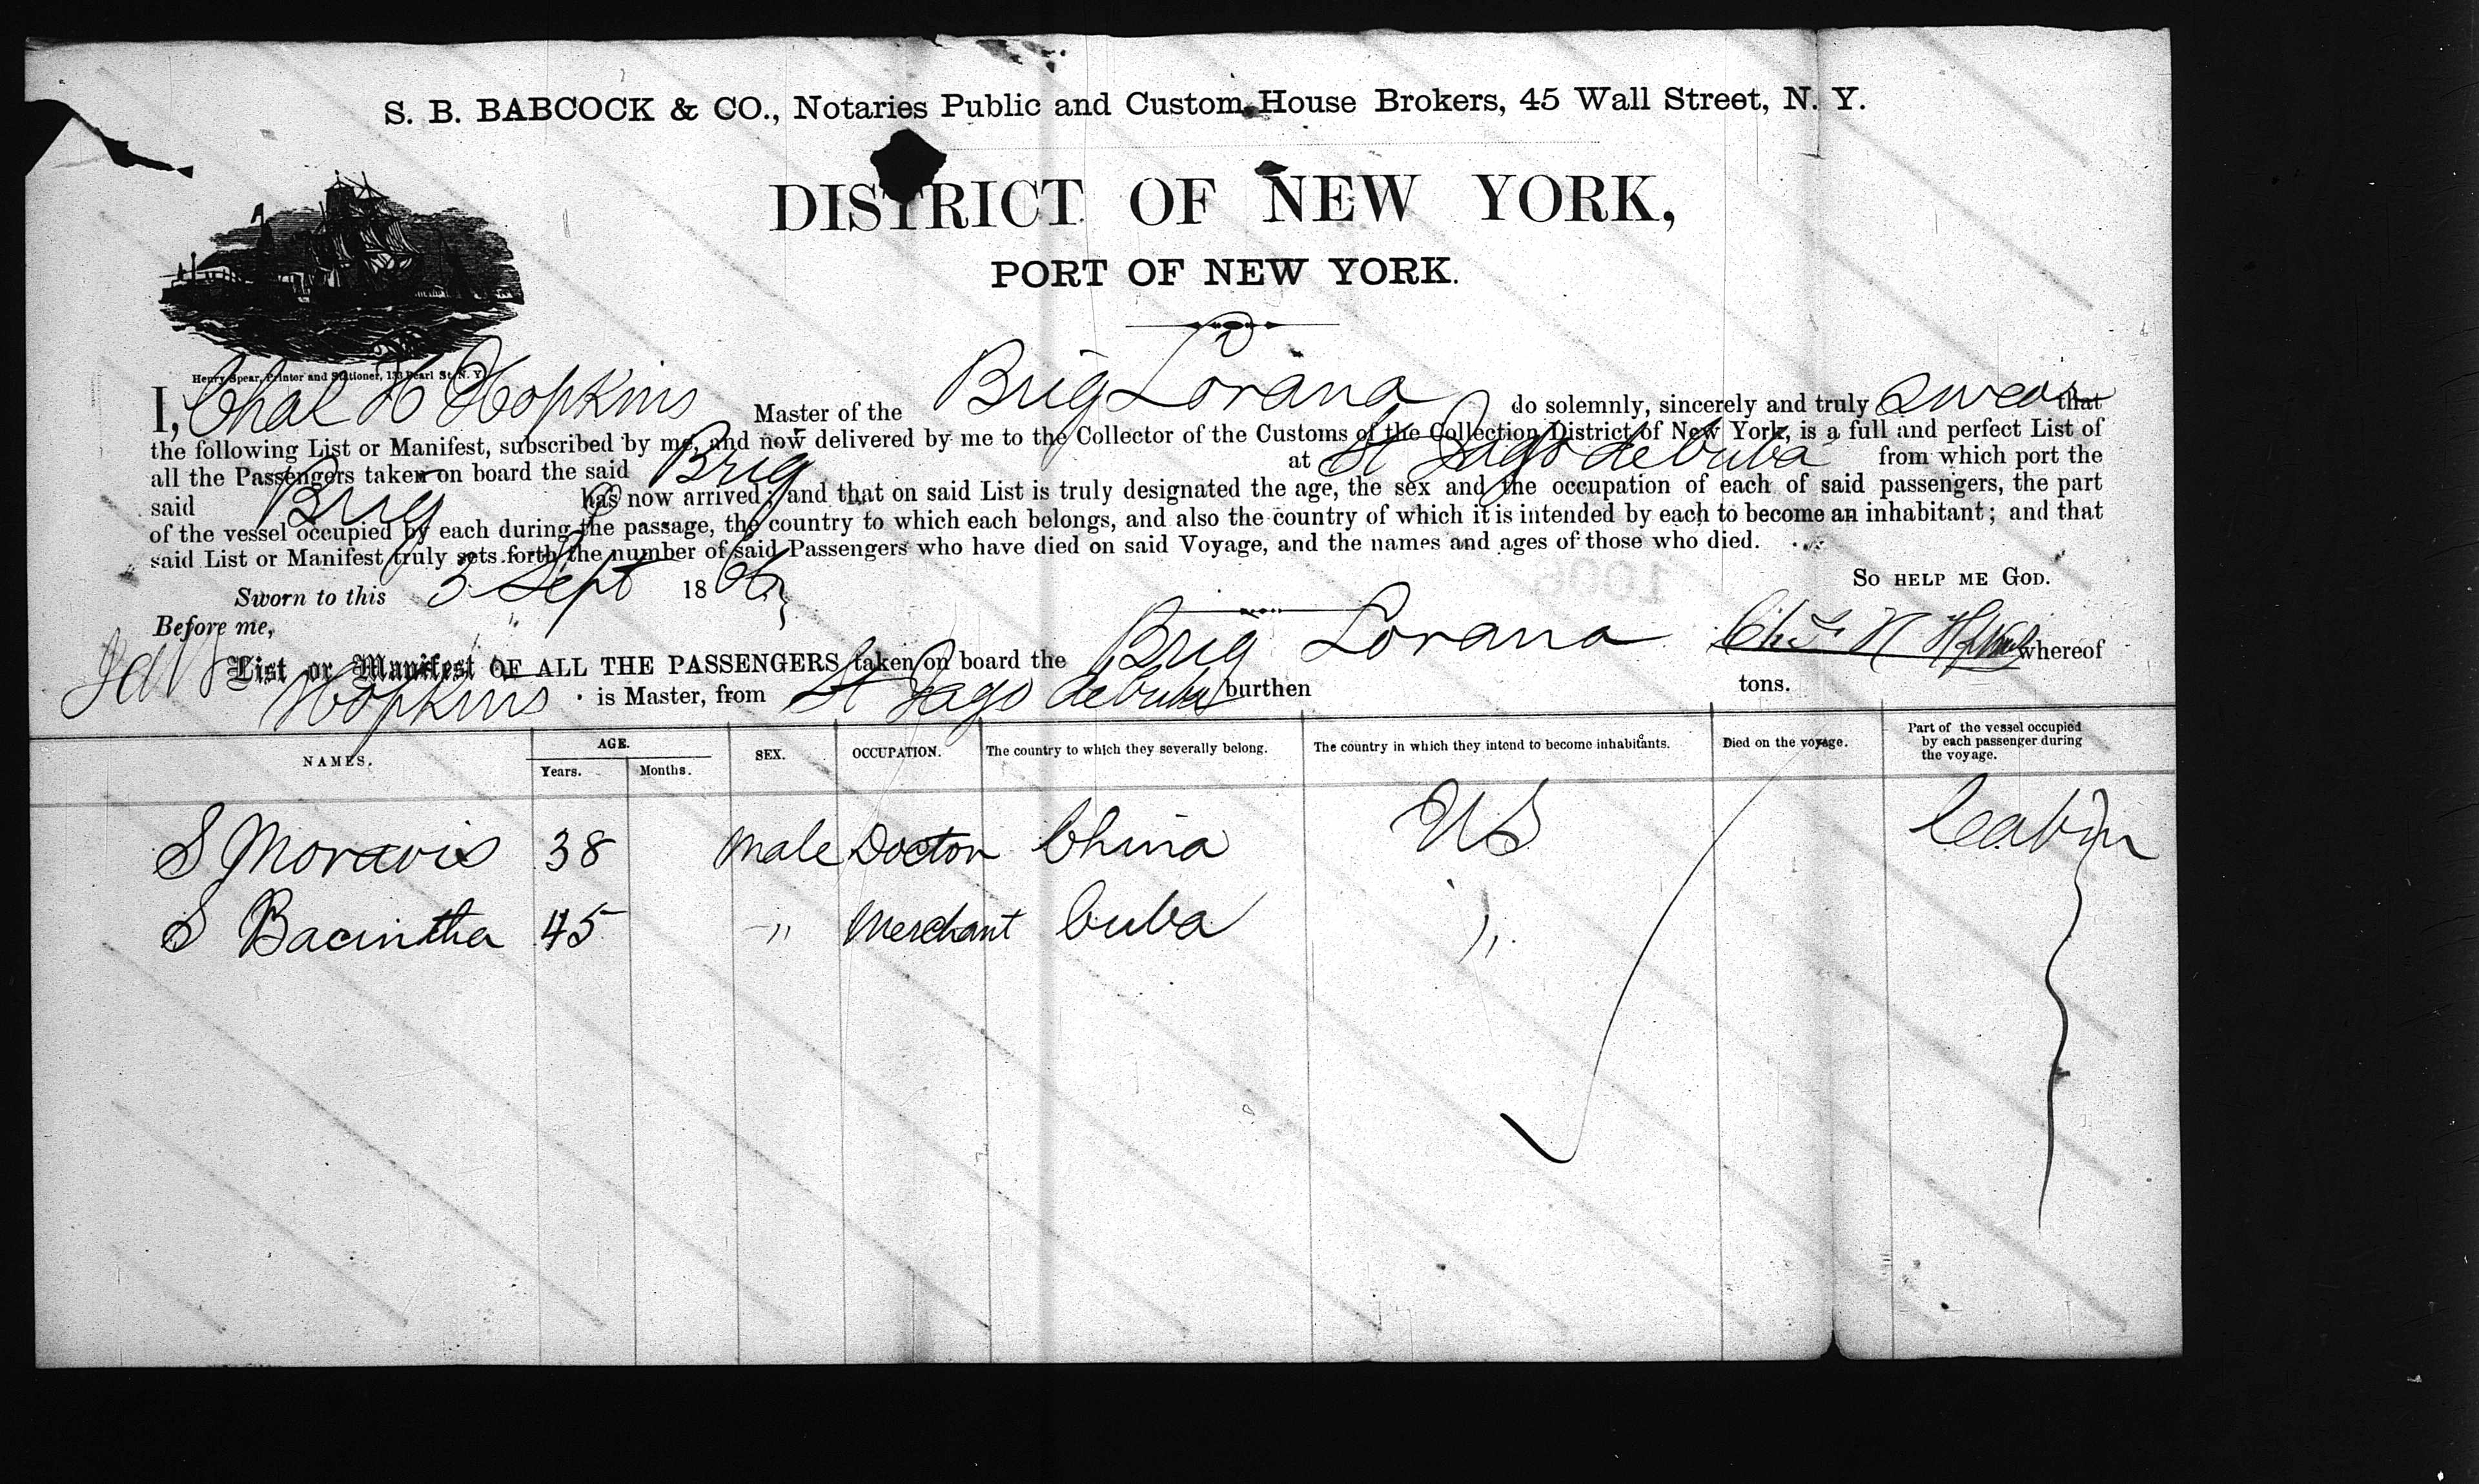 S. B. BABCOCK & CO., Notaries Public and Custom House Brokers, 45 Wall Street, N. Y.
DISTRICT OF NEW YORK,
PORT OF NEW YORK.
Henry Spear, Printer and Stationer, 133 Pearl St. N. Y.
I, Chas H Hopkins Master of the Brig Lorana do solemnly, sincerely and truly swear that
the following List or Manifest, subscribed by me, and now delivered by me to the Collector of the Customs of the Collection District of New York, is a full and perfect List of
all the Passengers taken on board the said Brig at St Jago de Cuba from which port the
said Brig has now arrived; and that on said List is truly designated the age, the sex and the occupation of each of said passengers, the part
of the vessel occupied by each during the passage, the country to which each belongs, and also the country of which it is intended by each to become an inhabitant; and that
said List or Manifest truly sets forth the number of said Passengers who have died on said Voyage, and the names and ages of those who died.
SO HELP ME GOD.
Sworn to this 3 Sept 1866
Before me, Chs H Hopkins
List or Manifest OF ALL THE PASSENGERS taken on board the Brig Lorana whereof
Hopkins is Master, from St Jago de Cuba burthen tons.
NAMES. AGE. Years. Months. SEX. OCCUPATION. The country to which they severally belong. The country in which they intend to become inhabitants. Died on the voyage. Part of the vessel occupied by each passenger during the voyage.
S Moravis 38 Male Doctor China US Cabin
S Bacintha 45 " Merchant Cuba "